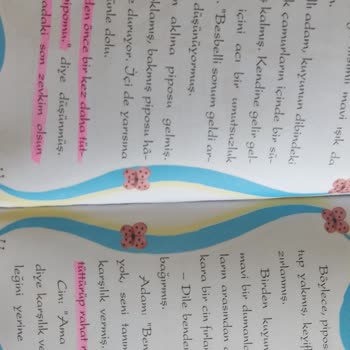 mavi ışık da,
llı adam, kuyunun dibindeki
k çamurların içinde bir sü-
ş kalmış. Kendine gelir gel-
içini acı bir umutsuzluk
. "Besbelli sonum geldi ar-
düşünüyormuş.
n aklına piposu gelmiş.
klamış, bakmış piposu hâ-
e duruyor. İçi de yarısına
ünle dolu.
den önce bir kez daha tüt-
pipomu," diye düşünmüş.
adaki son zevkim olsun.
Böylece, pipos
tup yakmış, keyifl
zırlanmış.
Birden kuyun
mavi bir dumanla
ların arasından
kara bir cin fırla
– Dile benden
bağırmış.
Adam: "Ben
yok, seni tanım
karşılık vermiş.
tüttürüp rahat r
Cin: "Ama
diye karşılık v
leğini yerine